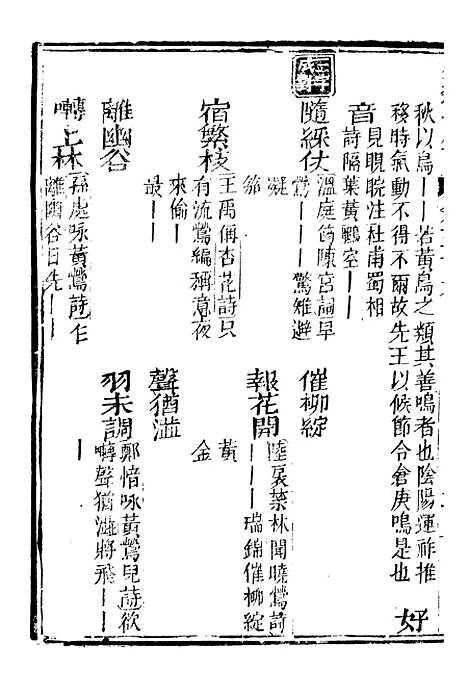 秋以鳥——若黃鳥之類其善鳴者也陰陽運祚推
移時氣動不得不爾故先王以候節令倉庚鳴是也 好
音見睍睆注杜甫蜀相
詩隔葉黃鸝空——
三字成對
隨綵仗溫庭筠陳宮詞早
鶯——驚雉避
凝笳
催柳綻
宿繁枝王禹偁杏花詩只
有流鶯編稱意夜
來偷——
最——
報花開陸扆禁林聞曉鶯詩
——瑞錦催柳綻
黃金
離幽谷
聲猶澁
囀上林孫處咏黃鶯詩乍
離幽谷日先——
羽未調鄭愔咏黃鶯兒詩欲
囀聲猶澁將飛——